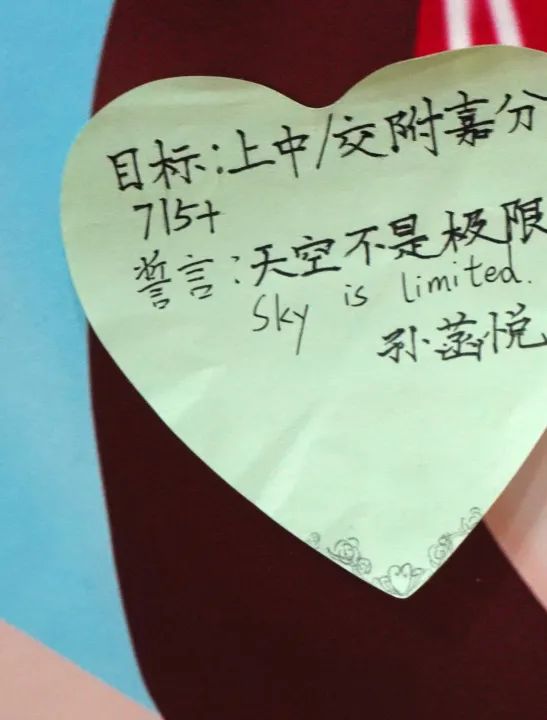 目标:上中/交附嘉分
715+
誓言:天空不是极限
Sky is limited.
孙菡悦